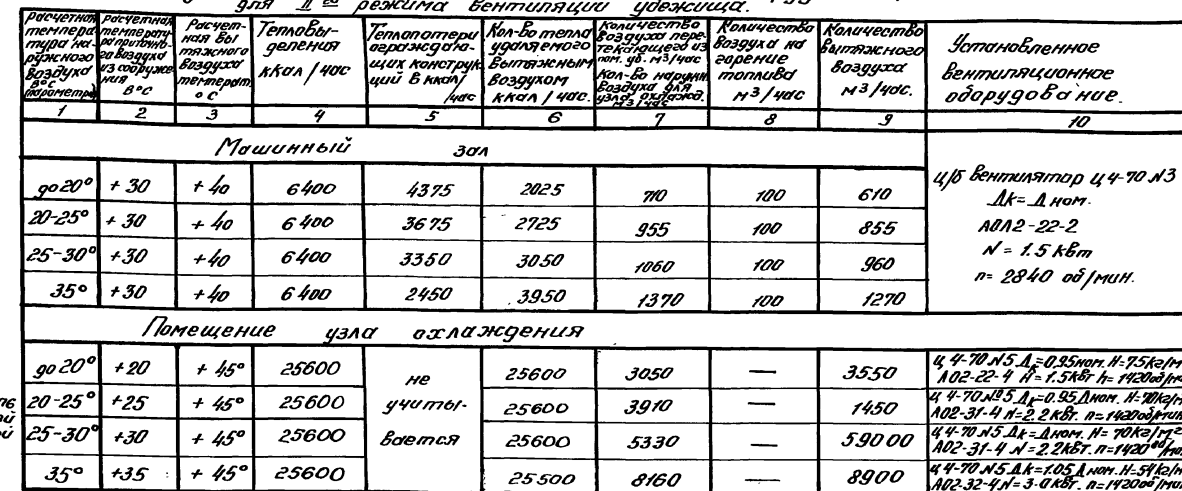 для II го режима вентиляции убежища.
Расчетная температура наружного воздуха в °С (параметры)
Расчетная температура приточного воздуха из сооружения в °С
Расчетная вытяжного воздуха температ. °С
Тепловыделения ккал/час
Теплопотери ограждающих конструкций в ккал/час
Кол-во тепла удаляемого вытяжным воздухом ккал/час.
Количество воздуха перетекающего из пом. уб. м3/час Кол-во наружн. воздуха для узла охлажд. м3/час
Количество воздуха на горение топлива м3/час
Количество вытяжного воздуха м3/час.
Установленное вентиляционное оборудование.
1 2 3 4 5 6 7 8 9 10
Машинный зал
до 20° +30 +40 6400 4375 2025 710 100 610
20-25° +30 +40 6400 3675 2725 955 100 855
25-30° +30 +40 6400 3350 3050 1060 100 960
35° +30 +40 6400 2450 3950 1370 100 1270
ц/б вентилятор Ц4-70 N3
Дк=Д ном.
АОЛ2-22-2
N = 1.5 кВт
n= 2840 об/мин.
Помещение узла охлаждения
до 20° +20 +45° 25600 не 25600 3050 — 3550 Ц 4-70 N5 Дк=0,95ном. H=75кг/м
А02-22-4 N=1.5кВт n=1420об/мин
20-25° +25 +45° 25600 учиты- 25600 3910 — 1450 Ц 4-70 №5 Дк=0.95Дном. H=70кг/м
А02-31-4 N=2.2кВт. n=1420об/мин
25-30° +30 +45° 25600 вается 25600 5330 — 59000 Ц 4-70 N5 Дк=Дном. H=70кг/м2
А02-31-4 N=2.2кВт. n=1420об/мин
35° +35 +45° 25600 25500 8160 — 8900 Ц 4-70 N5 Дк=1.05 Дном. H=54кг/м
А02-32-4 N=3-0кВт. n=1420об/мин